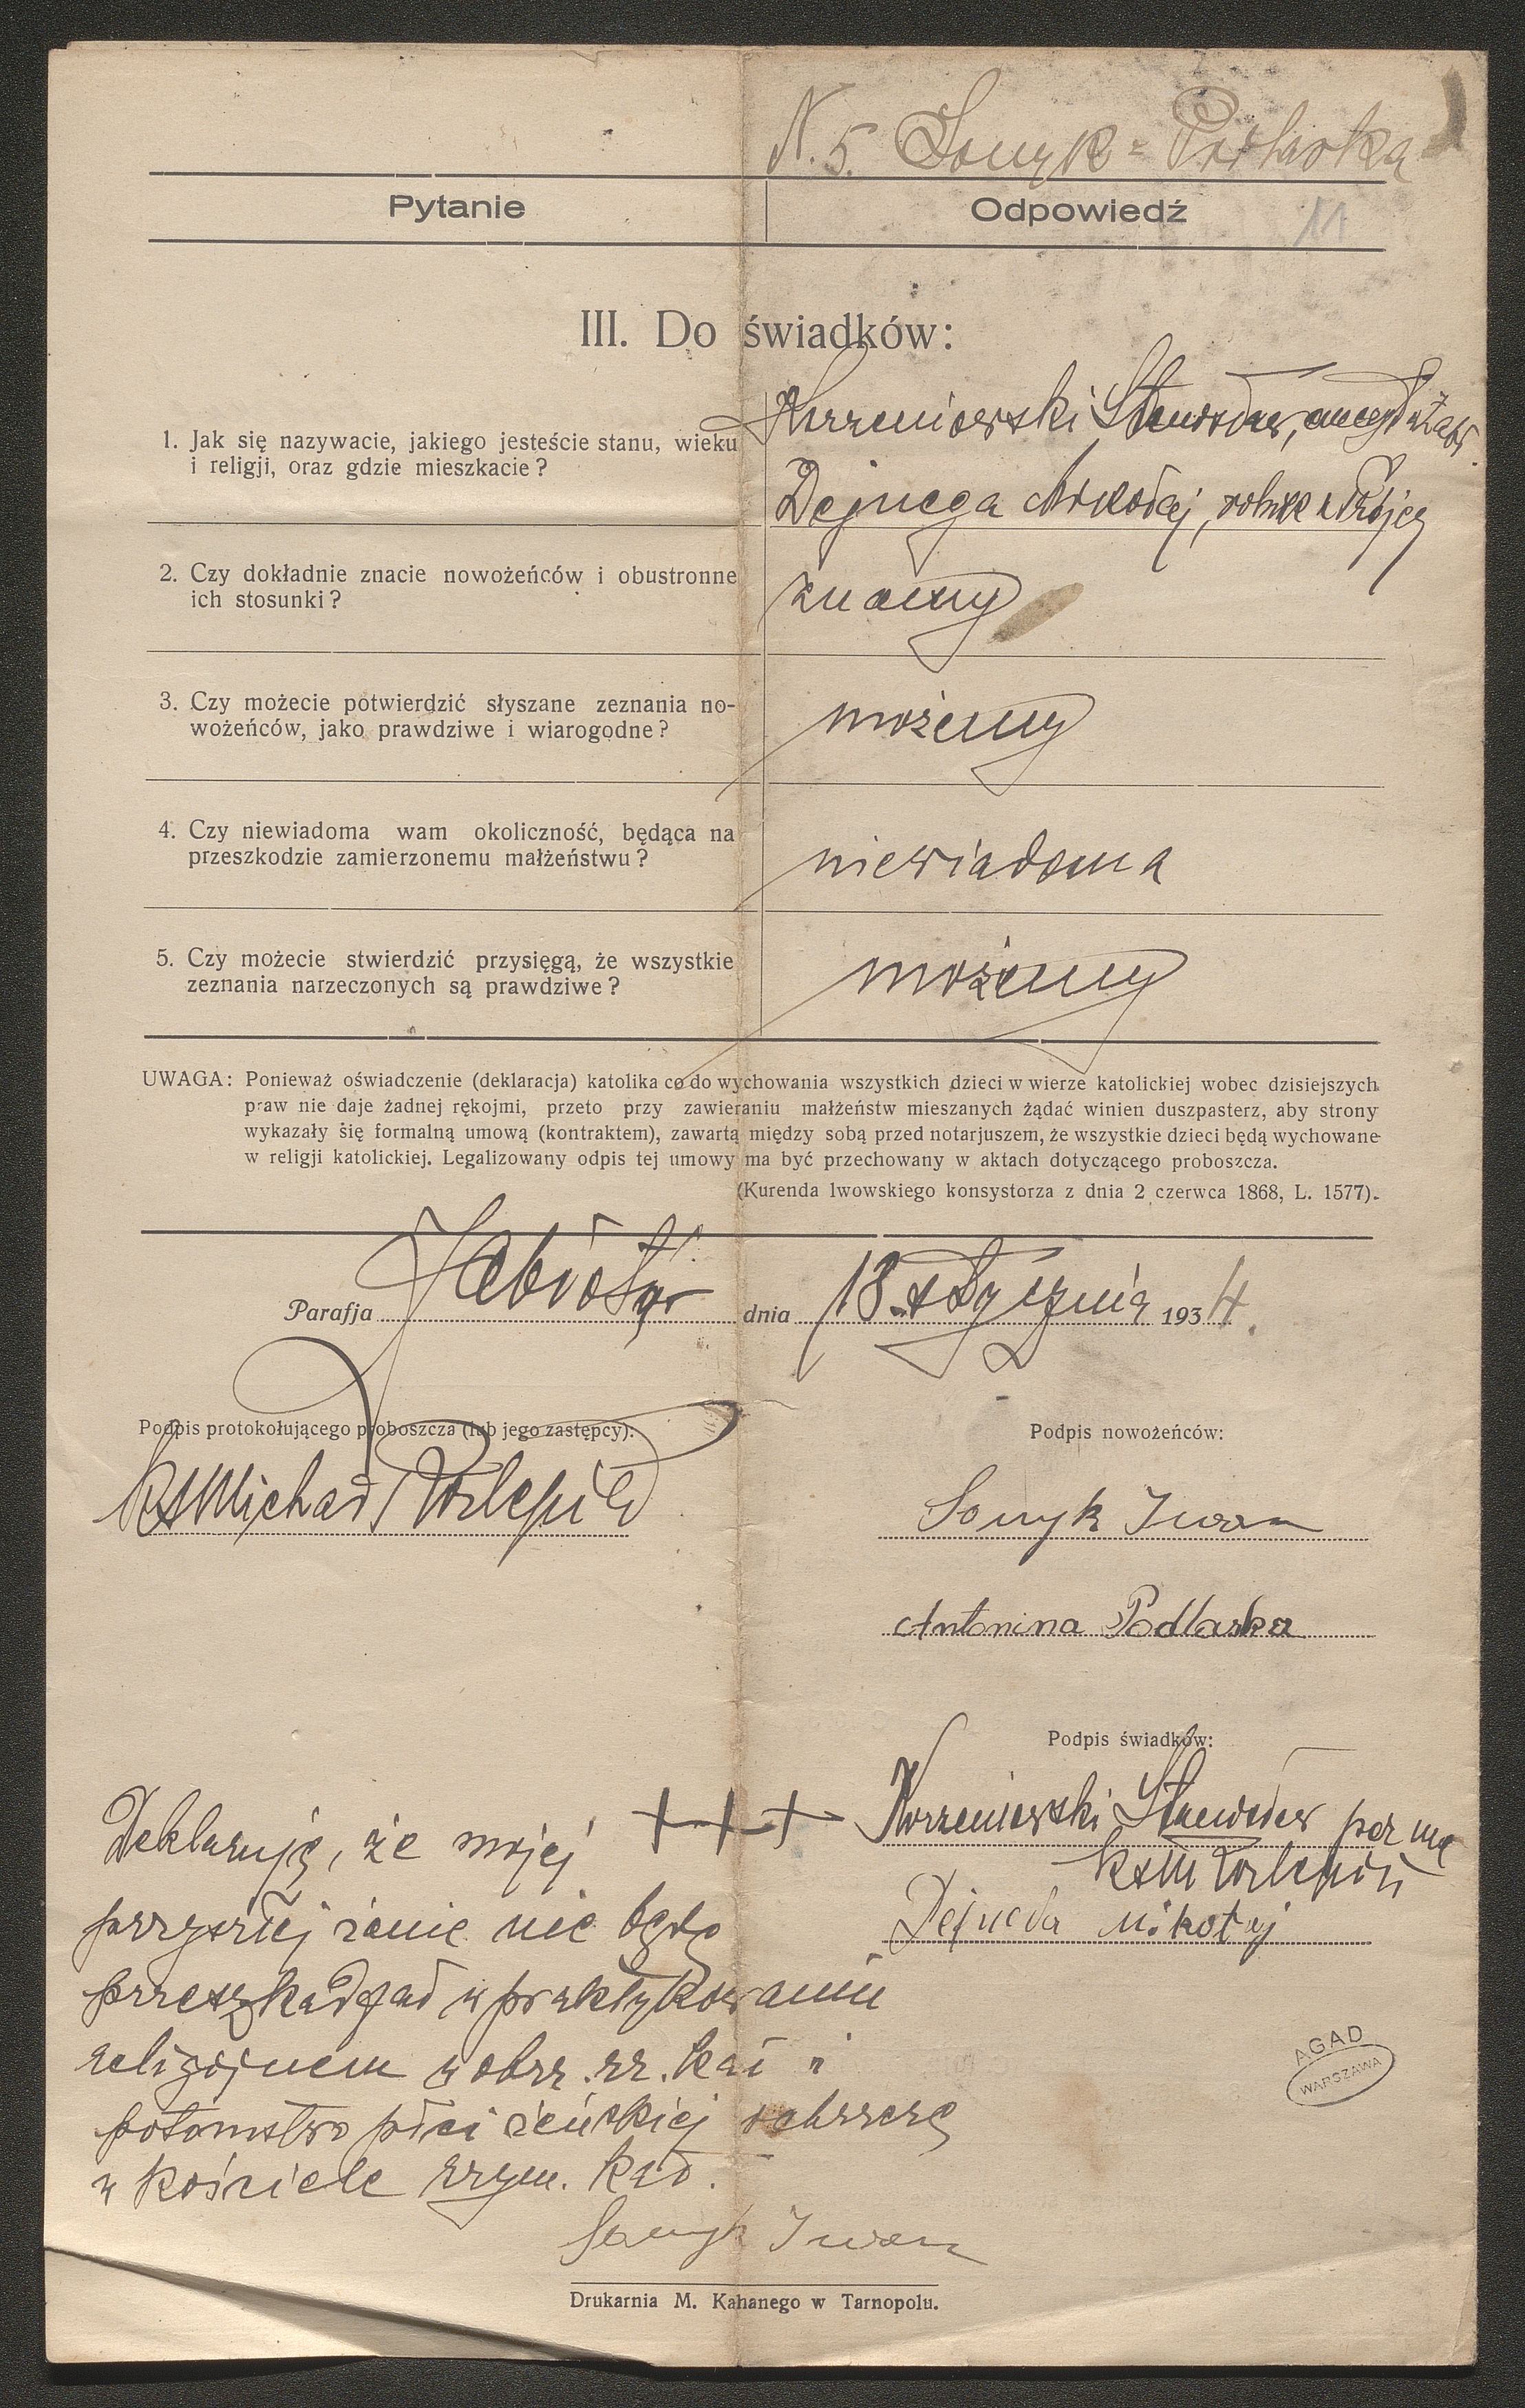 N. 5. Somyk = Podlaska
Pytanie
Odpowiedź
11
III. Do świadków:
1. Jak się nazywacie, jakiego jesteście stanu, wieku
i religji, oraz gdzie mieszkacie?
Korzeniowski Stanisław,
Dejnega Mikołaj, rolnik z Trójcy
2. Czy dokładnie znacie nowożeńców i obustronne
ich stosunki?
znamy
3. Czy możecie potwierdzić słyszane zeznania no-
wożeńców, jako prawdziwe i wiarogodne?
możemy
4. Czy niewiadoma wam okoliczność, będąca na
przeszkodzie zamierzonemu małżeństwu?
niewiadoma
5. Czy możecie stwierdzić przysięgą, że wszystkie
zeznania narzeczonych są prawdziwe?
możemy
UWAGA: Ponieważ oświadczenie (deklaracja) katolika co do wychowania wszystkich dzieci w wierze katolickiej wobec dzisiejszych
praw nie daje żadnej rękojmi, przeto przy zawieraniu małżeństw mieszanych żądać winien duszpasterz, aby strony
wykazały się formalną umową (kontraktem), zawartą między sobą przed notarjuszem, że wszystkie dzieci będą wychowane
w religji katolickiej. Legalizowany odpis tej umowy ma być przechowany w aktach dotyczącego proboszcza.
(Kurenda lwowskiego konsystorza z dnia 2 czerwca 1868, L. 1577).
Parafja Zabłotów dnia 18. stycznia 1934.
Podpis protokołującego proboszcza (lub jego zastępcy):
Podpis nowożeńców:
Ks Michał
Somyk Iwan
Antonina Podlaska
Podpis świadków:
+++ Korzeniowski Stanisław per me
Dejneda Mikołaj
Deklaruję, że mojej
przyszłej żonie nie będę
przeszkadzał w praktykowaniu
religijnem w obrz. rz. kat i
potomstwo płci żeńskiej ochrzczę
w kościele rzym. kat.
Somyk Iwan
AGAD
WARSZAWA
Drukarnia M. Kahanego w Tarnopolu.